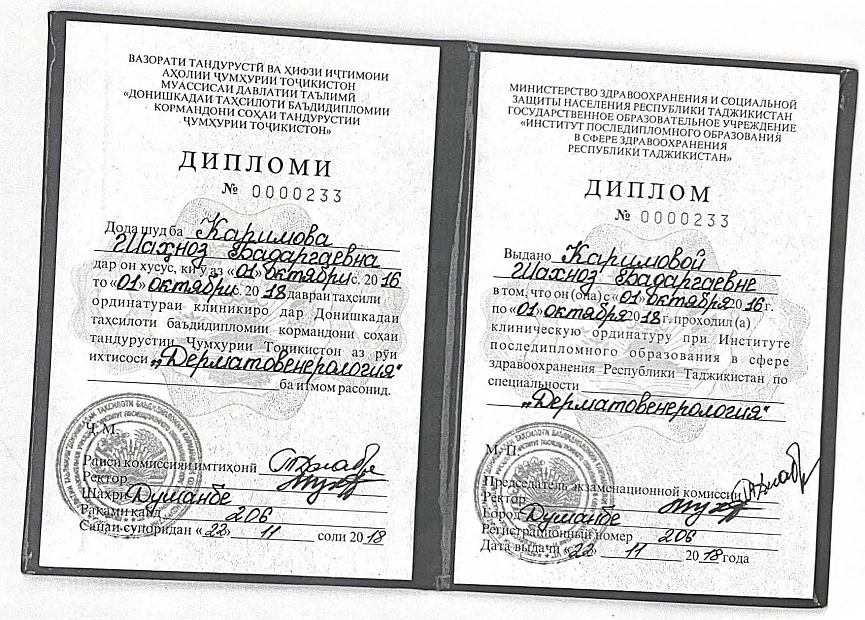 ВАЗОРАТИ ТАНДУРУСТӢ ВА ҲИФЗИ ИҶТИМОИИ
АҲОЛИИ ҶУМҲУРИИ ТОҶИКИСТОН
МУАССИСАИ ДАВЛАТИИ ТАЪЛИМӢ
«ДОНИШКАДАИ ТАҲСИЛОТИ БАЪДИДИПЛОМИИ
КОРМАНДОНИ СОҲАИ ТАНДУРУСТИИ
ҶУМҲУРИИ ТОҶИКИСТОН»
ДИПЛОМИ
№ 0000233
Дода шуд ба Каримова
Шахноз Бадаргаевна
дар он хусус, ки ӯ аз «01» октябри с. 2016
то «01» октябри с. 2018 давраи таҳсили
ординатураи клиникиро дар Донишкадаи
таҳсилоти баъдидипломии кормандони соҳаи
тандурустии Ҷумҳурии Тоҷикистон аз рӯи
ихтисоси „Дерматовенерология“
ба итмом расонид.
Ҷ.М.
Раиси комиссияи имтиҳонӣ
Ректор
Шаҳри Душанбе
Рақами қайд 206
Санаи супоридан «22» 11 соли 2018
МИНИСТЕРСТВО ЗДРАВООХРАНЕНИЯ И СОЦИАЛЬНОЙ
ЗАЩИТЫ НАСЕЛЕНИЯ РЕСПУБЛИКИ ТАДЖИКИСТАН
ГОСУДАРСТВЕННОЕ ОБРАЗОВАТЕЛЬНОЕ УЧРЕЖДЕНИЕ
«ИНСТИТУТ ПОСЛЕДИПЛОМНОГО ОБРАЗОВАНИЯ
В СФЕРЕ ЗДРАВООХРАНЕНИЯ
РЕСПУБЛИКИ ТАДЖИКИСТАН»
ДИПЛОМ
№ 0000233
Выдано Каримовой
Шахноз Бадаргаевне
в том, что он (она) с «01» октября 2016 г.
по «01» октября 2018 г. проходил (а)
клиническую ординатуру при Институте
последипломного образования в сфере
здравоохранения Республики Таджикистан по
специальности
„Дерматовенерология“
М. П.
Председатель экзаменационной комиссии
Ректор
Город Душанбе
Регистрационный номер 206
Дата выдачи «22» 11 2018 года